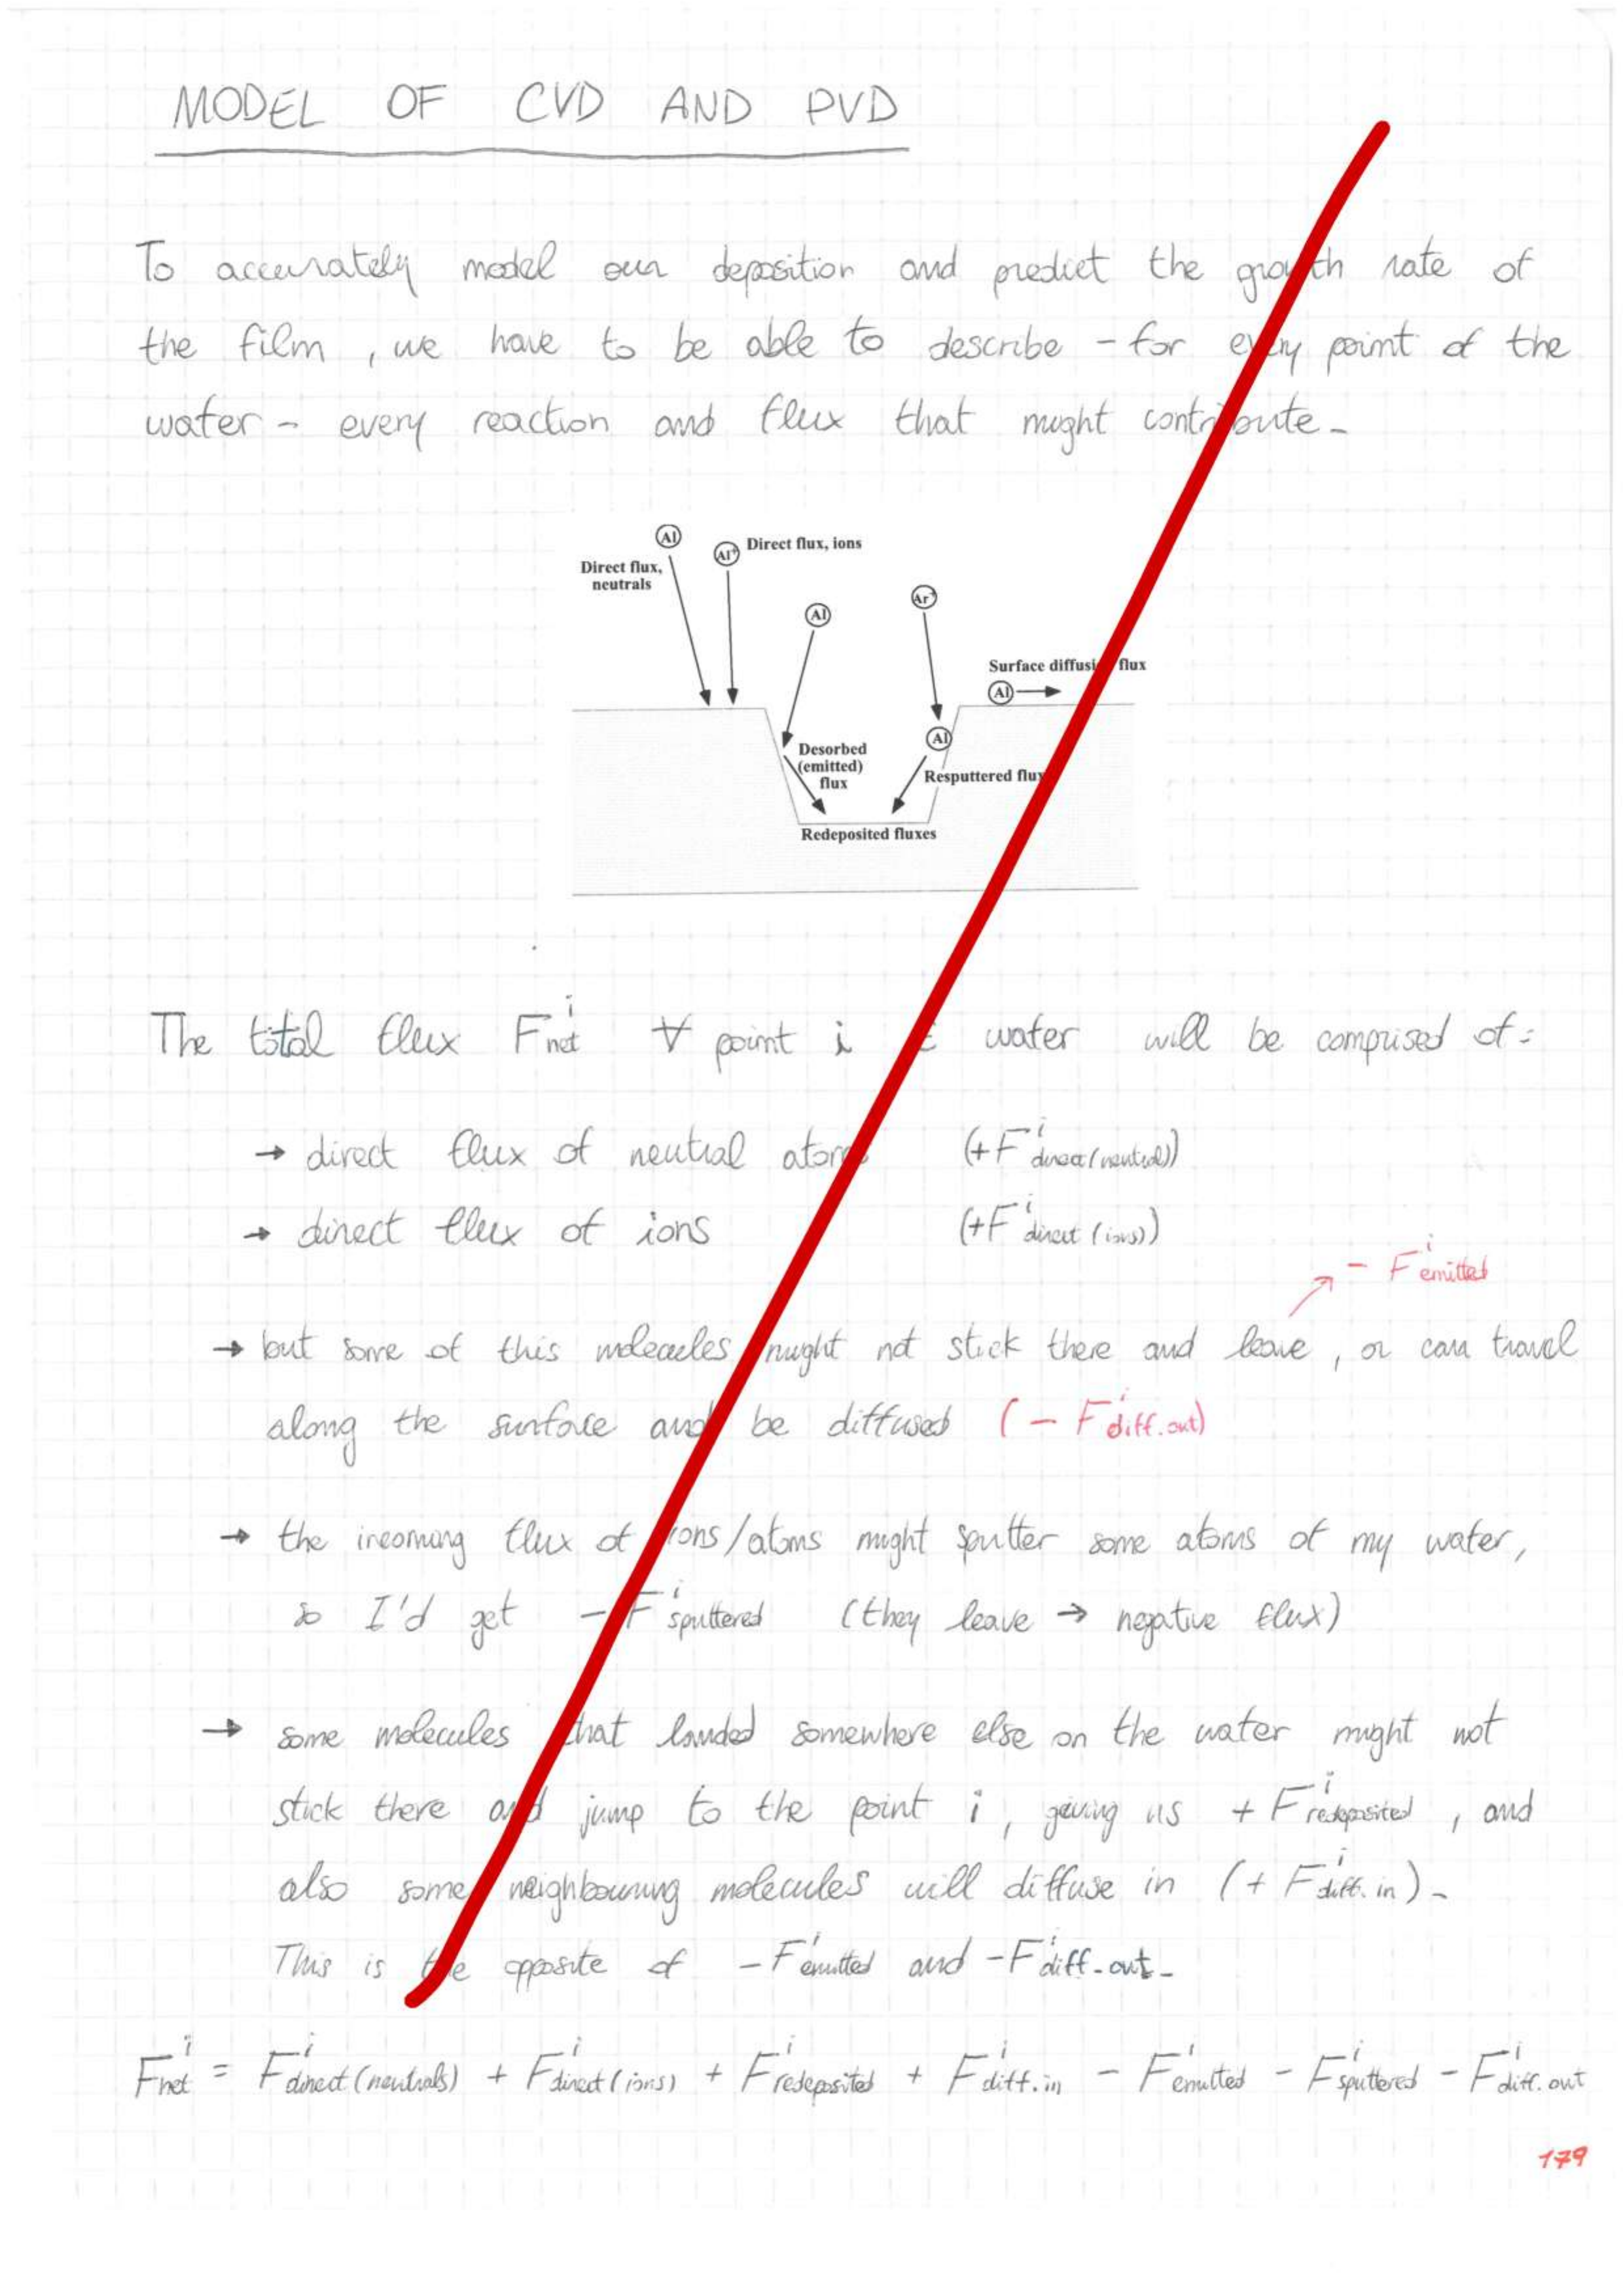 MODEL OF CVD AND PVD
To accurately model our deposition and predict the growth rate of
the film, we have to be able to describe - for every point of the
wafer - every reaction and flux that might contribute.
Al
Al+ Direct flux, ions
Direct flux,
neutrals
Al
Ar+
Surface diffusion flux
Al
Al
Desorbed
(emitted)
flux
Resputtered flux
Redeposited fluxes
The total flux F^i net ∀ point i ∈ wafer will be comprised of:
→ direct flux of neutral atoms (+F^i direct (neutral))
→ direct flux of ions (+F^i direct (ions))
- F^i emitted
→ but some of this molecules might not stick there and leave, or can travel
along the surface and be diffused (- F^i diff. out)
→ the incoming flux of ions/atoms might sputter some atoms of my wafer,
so I'd get - F^i sputtered (they leave → negative flux)
→ some molecules that landed somewhere else on the wafer might not
stick there and jump to the point i, giving us + F^i redeposited, and
also some neighbouring molecules will diffuse in (+ F^i diff. in).
This is the opposite of - F^i emitted and - F^i diff. out.
F^i net = F^i direct (neutrals) + F^i direct (ions) + F^i redeposited + F^i diff. in - F^i emitted - F^i sputtered - F^i diff. out
179